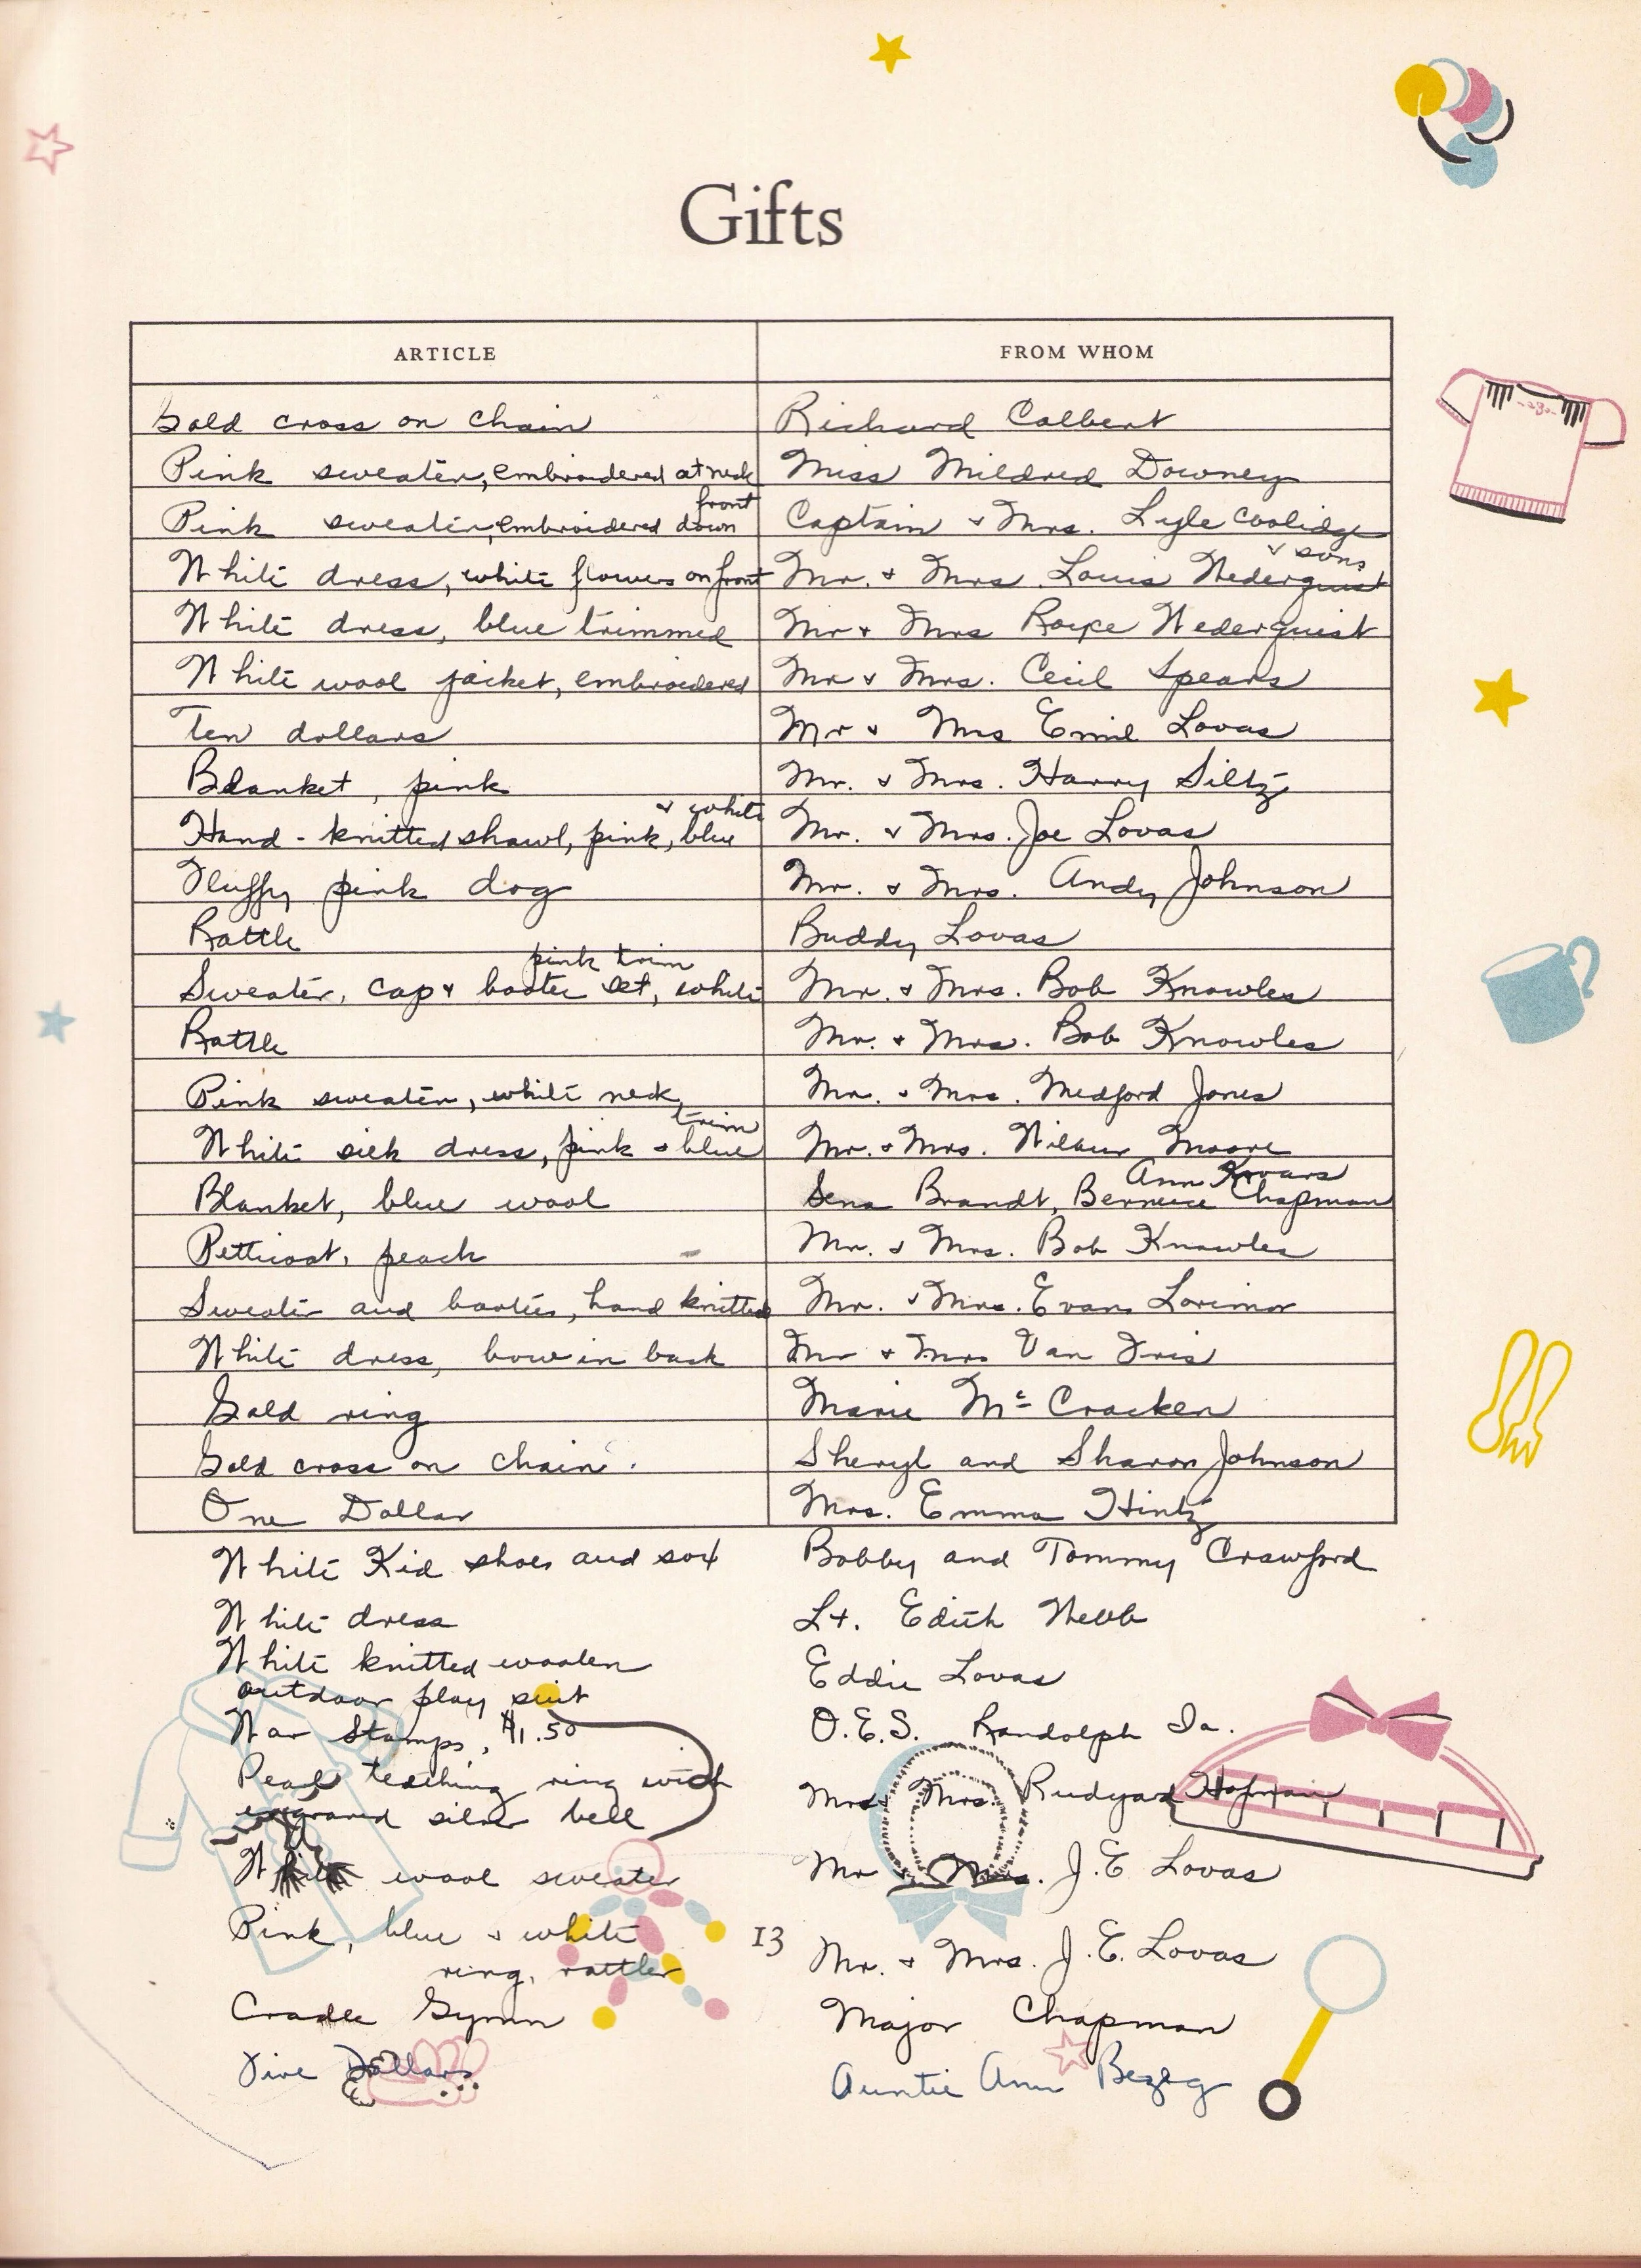 Gifts
ARTICLE FROM WHOM
Gold cross on chain Richard Colbert
Pink sweater, embroidered at neck Miss Mildred Downey
Pink sweater, embroidered down front Captain & Mrs. Lyle Coolidge & sons
White dress, white flowers on front Mr. & Mrs. Louis Nederquist
White dress, blue trimmed Mr & Mrs Nederquist
White wool jacket, embroidered Mr & Mrs. Cecil Spears
Ten dollars Mr & Mrs Emil Lovas
Blanket, pink Mr. & Mrs. Harry Siltz
Hand-knitted shawl, pink, blue & white Mr. & Mrs. Joe Lovas
Fluffy pink dog Mr. & Mrs. Andy Johnson
Rattle Buddy Lovas
Sweater, cap & bootee set, white pink trim Mr. & Mrs. Bob Knowles
Rattle Mr. & Mrs. Bob Knowles
Pink sweater, white neck Mr. & Mrs. Medford Jones
White silk dress, pink & blue trim Mr. & Mrs. Wilbur Moore
Blanket, blue wool Sena Brandt, Bernice Chapman Ann
Petticoat, peach Mr. & Mrs. Bob Knowles
Sweater and booties, hand knitted Mr. & Mrs. Evans Lorimor
White dress, bow in back Mr & Mrs Van Fris
Gold ring Marie Mc Cracken
Gold cross on chain. Sheryl and Sharon Johnson
One Dollar Mrs. Emma Hintz
White Kid shoes and sox Bobby and Tommy Crawford
White dress Lt. Edith Webb
White knitted woolen Eddie Lovas
outdoor play suit
War Stamps, $1.50 O.E.S. Randolph Ia.
Pearl teething ring with Mr & Mrs. Rudyard Hofman
engraved silver bell
White wool sweater Mr & Mrs. J.E Lovas
Pink, blue & white 13 Mr. & Mrs. J.E. Lovas
ring, rattler
Cradle Gymn Major Chapman
Five Dollars Auntie Ann Bezeg